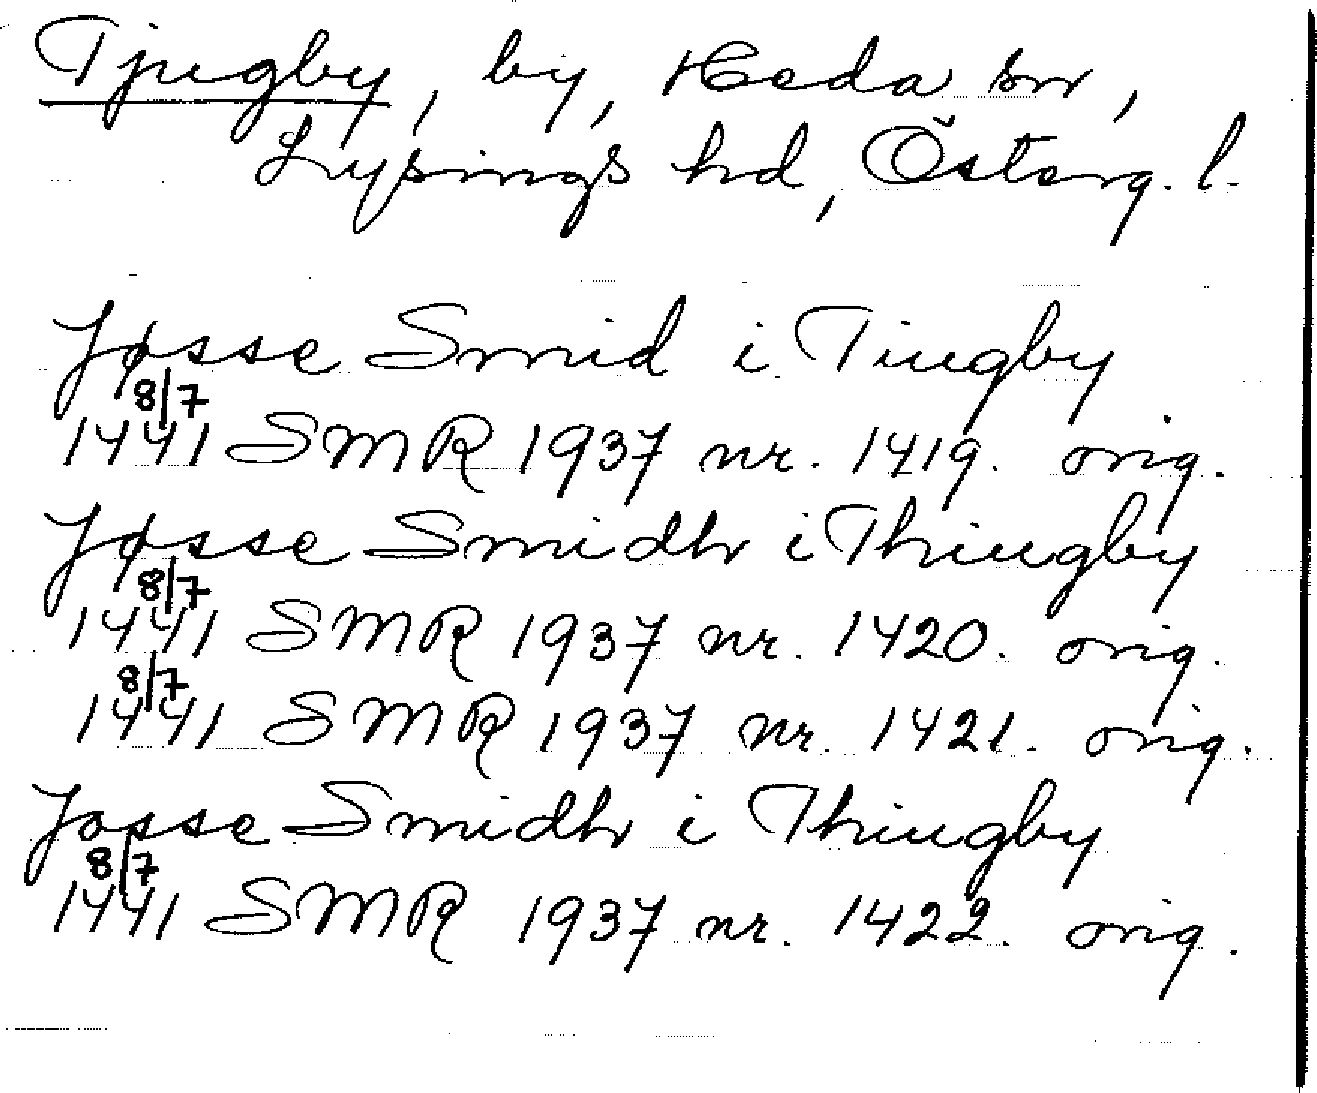 Tjugby, by, Heda sn,
Lysings hd, Österg. l.
Jøsse Smid i Tiugby
8/7
1441 SMR 1937 nr. 1419. orig.
Jøsse Smidh i Thiugby
8/7
1441 SMR 1937 nr. 1420. orig.
8/7
1441 SMR 1937 nr. 1421. orig.
Josse Smidh i Thiugby
8/7
1441 SMR 1937 nr. 1422. orig.